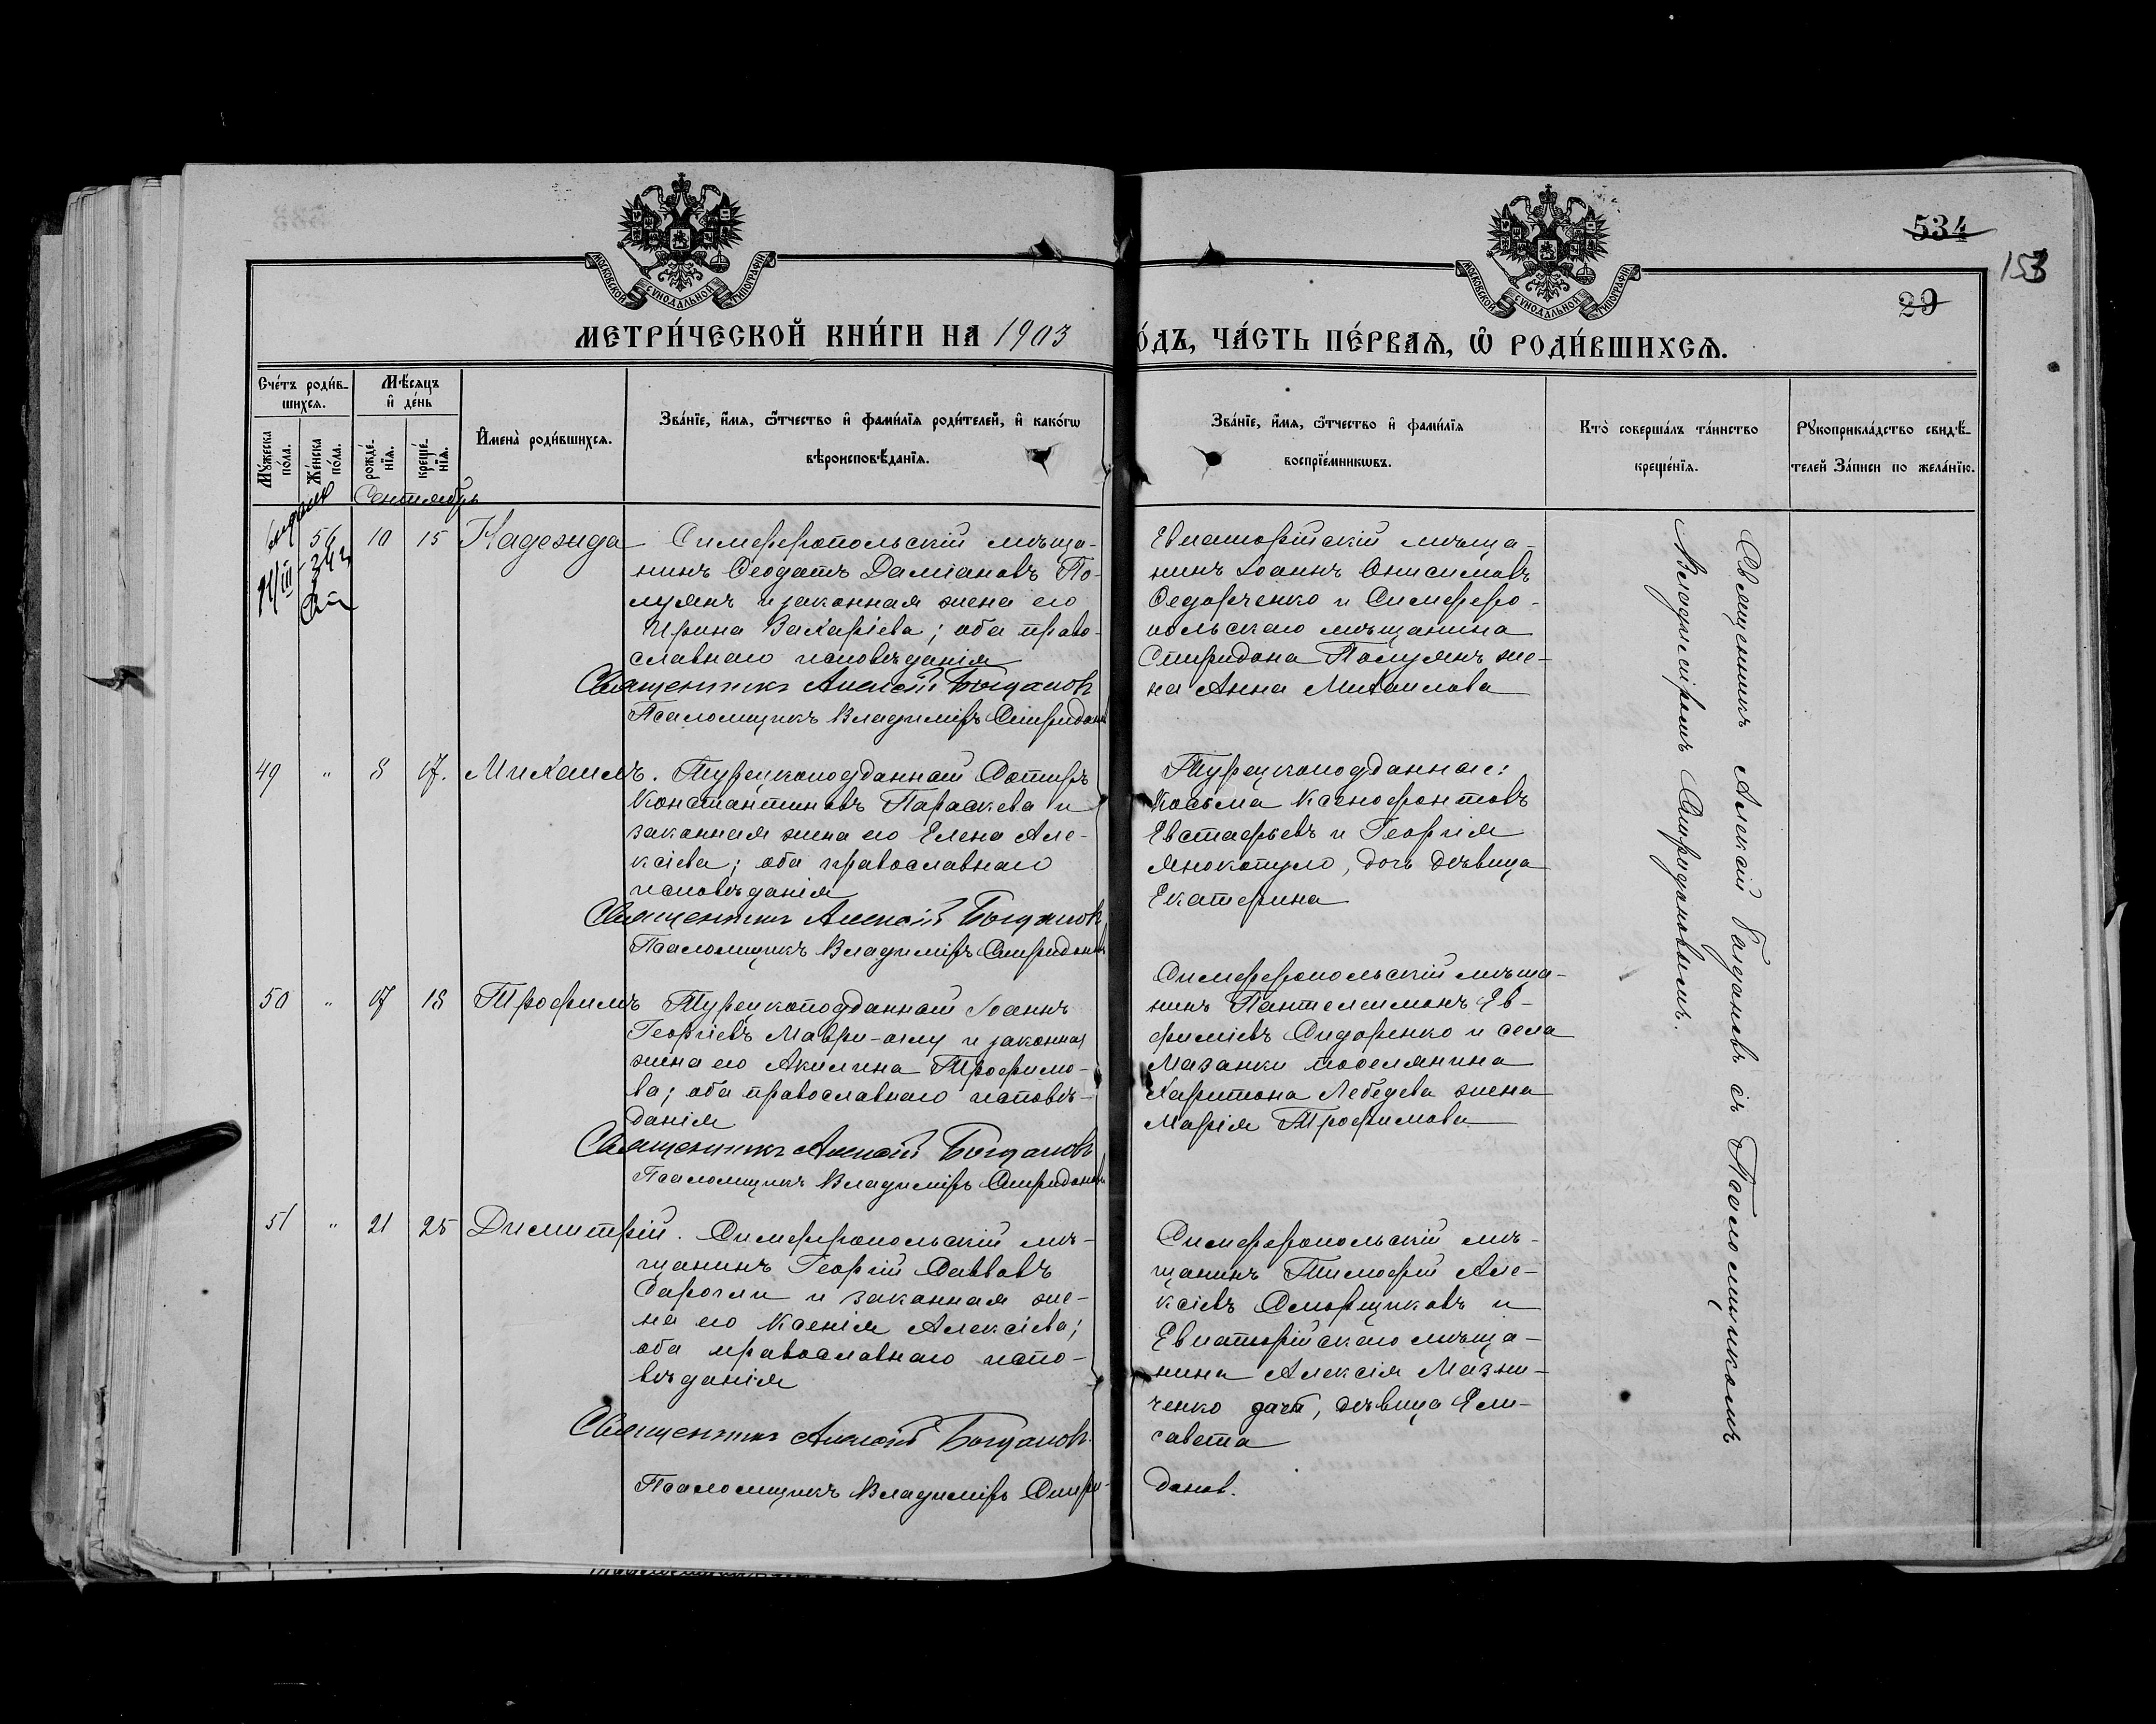 МОСКОВСКОЙ СѴНОДАЛЬНОЙ ТИПОГРАФІИ
МОСКОВСКОЙ СѴНОДАЛЬНОЙ ТИПОГРАФІИ
534
153
29
МЕТРИ́ЧЕСКОЙ КНИ́ГИ НА 1903
О́ДЪ, ЧА́СТЬ ПЕ́РВАѦ, Ѡ҆ РОДИ́ВШИХСѦ.
Сче́тъ роди́в-
шихсѧ.
Мѣ́сѧцъ
и҆ де́нь
Мꙋ́жеска
по́ла.
Же́нска
по́ла.
рожде́-
нїѧ.
креще́-
нїѧ.
И҆мена̀ роди́вшихсѧ.
Зва́нїе, и҆́мѧ, ѻ҆́тчество и҆ фами́лїѧ роди́телей, и҆ како́гѡ
вѣроисповѣ́данїѧ.
Зва́нїе, и҆́мѧ, ѻ҆́тчество и҆ фами́лїѧ
воспрїе́мникѡвъ.
Кто̀ соверша́лъ та́инство
креще́нїѧ.
Рꙋкоприкла́дство свидѣ́-
телей за́писи по жела́нїю.
Сентябрь
56 10 15 Надежда
Симферопольскій мѣща-
нинъ Ѳеодатъ Даміановъ По-
лумянъ и законная жена его
Ирина Захаріева; оба право-
славнаго исповѣданія
Священникъ Алексій Богданов
Псаломщикъ Владиміръ Спиридонов
Евпаторійскій мѣща-
нинъ Іоаннъ Онисимовъ
Федорченко и Симферо-
польскаго мѣщанина
Спиридона Полумянъ же-
на Анна Михаилова
49 " 8 17. Михаилъ.
Турецкоподданный Сотиръ
Константиновъ Параскева и
законная жена его Елена Але-
ксіева; оба православнаго
исповѣданія
Священникъ Алексій Богданов
Псаломщикъ Владиміръ Спиридонов
Турецкоподданные:
Косьма Ксенофонтовъ
Евстафьевъ и Георгія
Янокопуло, дочь дѣвица
Екатерина
50 " 17 18 Трофимъ
Турецкоподданный Іоаннъ
Георгіевъ Маври-оглу и законная
жена его Акилина Трофимо-
ва; оба православнаго исповѣ-
данія
Священникъ Алексій Богдановъ
Псаломщикъ Владиміръ Спиридонов
Симферопольскій мѣща-
нинъ Пантелеимонъ Ев-
фиміевъ Сидоренко и села
Мазанки поселянина
Харитона Лебедева жена
Марія Трофимова
51 " 21 25 Димитрій.
Симферопольскій мѣ-
щанинъ Георгій Савовъ
Сарогли и законная же-
на его Ксенія Алексіева;
оба православнаго испо-
вѣданія
Священникъ Алексій Богданов.
Псаломщикъ Владиміръ Спири-
донов.
Симферопольскій мѣ-
щанинъ Тимофей Але-
ксіевъ Сморщиковъ и
Евпаторійскаго мѣща-
нина Алексія Мазни-
ченко дочь, дѣвица Ели-
савета
Священникъ Алексій Богдановъ съ Псаломщикомъ
Владиміромъ Спиридоновымъ.